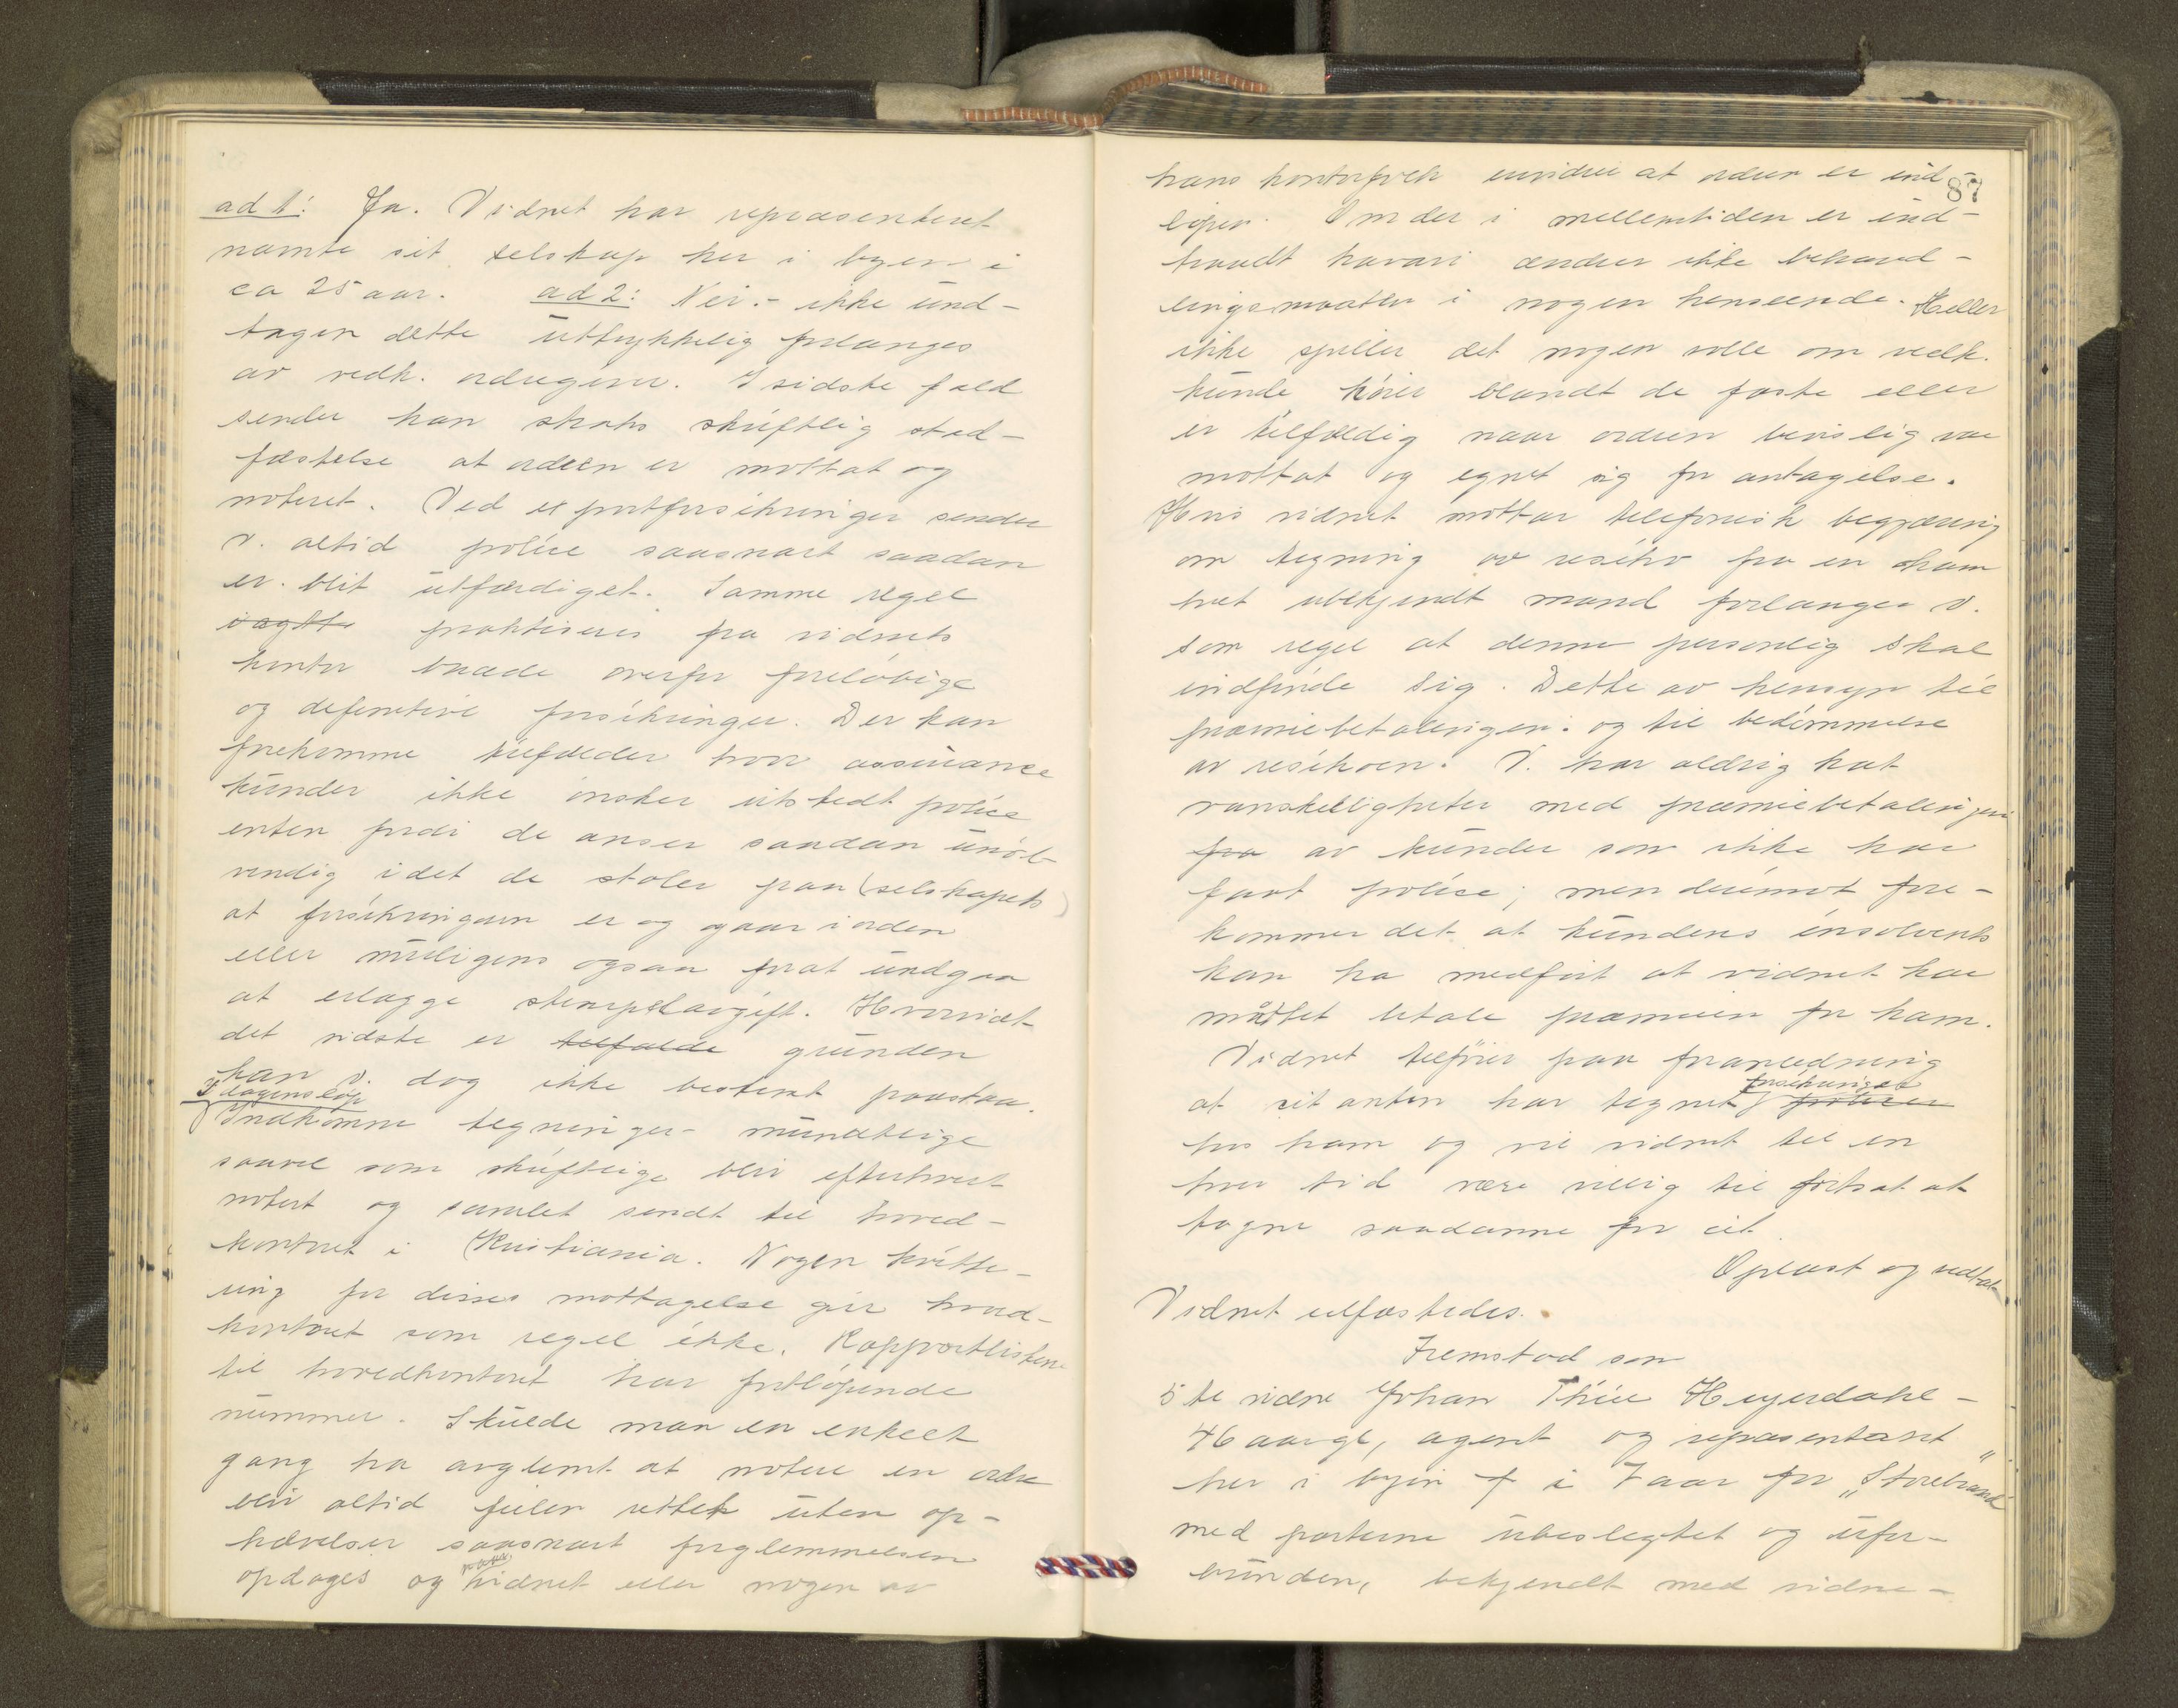 ad 1: Ja. Vidnet har repræsenteret
nævnte sit selskap her i byen i
ca 25 aar. ad 2: Nei.- ikke und-
tagen dette uttrykkelig forlanges
av vedk. ordregiver. I sidste fald
sender han straks skriftlig stad-
fæstelse at ordren er mottat og
noteret. Ved exportforsikringer sender
V. altid police saasnart saadan
er blit utfærdiget. Samme regel
praktiseres fra vidnets
kontor baade overfor foreløbige
og definitive forsikringer. Der kan
forekomme tilfælder hvor assurance
kunder ikke ønsker utstedt police
enten fordi de anser saadan unød-
vendig idet de stoler paa (selskapets)
at forsikringen er og gaar i orden
eller muligens ogsaa for at undgaa
at erlægge stempelavgift. Hvorvidt
det sidste er tilfælde grunden
kan V. dog ikke bestemt paastaa.
I dagens løp
Indkomne tegninger mundtlige
saavel som skriftlige blir efterhvert
notert og samlet sendt til hoved-
kontoret i Kristiania. Nogen kvitte-
ring for disses mottagelse gir hoved-
kontoret som regel ikke. Rapportlistene
til hovedkontoret har fortløpende
nummer. Skulde man en enkelt
gang ha avglemt at notere en ordre
blir altid feilen rettet uten op-
hævelser saasnart forglemmelsen
opdages og vidnet eller nogen av
87
hans kontorfolk erindrer at ordren er ind-
løpen. Om der i mellemtiden er ind-
traadt havari ændrer ikke behand-
lingsmaaten i nogen henseende. Heller
ikke spiller det nogen rolle om vedk.
kunde hører blandt de faste eller
er tilfældig naar ordren bevislig var
mottat og egnet sig for antagelse.
Hvis vidnet mottar telefonisk begjæring
om tegning av risiko fra en ham
helt ubekjendt mand forlanger V.
som regel at denne personlig skal
indfinde sig. Dette av hensyn til
præmiebetalingen og til bedømmelse
av risikoen. V. har aldrig hat
vanskeligheter med præmiebetalingen
fra av kunder som ikke har
faat police; men derimot fore-
kommer det at kundens insolvents
kan ha medført at vidnet har
måttet betale præmien for ham.
Vidnet tilføier paa foranledning
at citanten har tegnet forsikringer policer
hos ham og vil vidnet til en
hver tid være villig til fortsat at
tegne saadanne for cit.
Oplæst og vedtat
Vidnet edfæstedes.
Fremstod som
5te vidne Johan Thiis Heyerdahl -
46 aargl, agent og repræsentant
her i byen i 7 aar for "Storebrand"
med parterne ubeslegtet og ufor-
bunden, bekjendt med vidne-